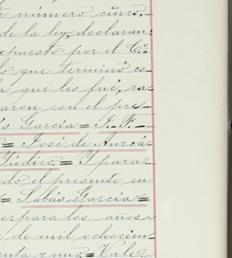 te número cinco,
de la ley, declaran:
xpuesto por el C.
lo que terminó es-
a que les fué, ra-
aron con el pre-
ás García = J. F. =
= José de
Júdico. = Y para
do el presente en
= Sabás García =
er para los
s de mil ochocien-
enta y uno = Vale